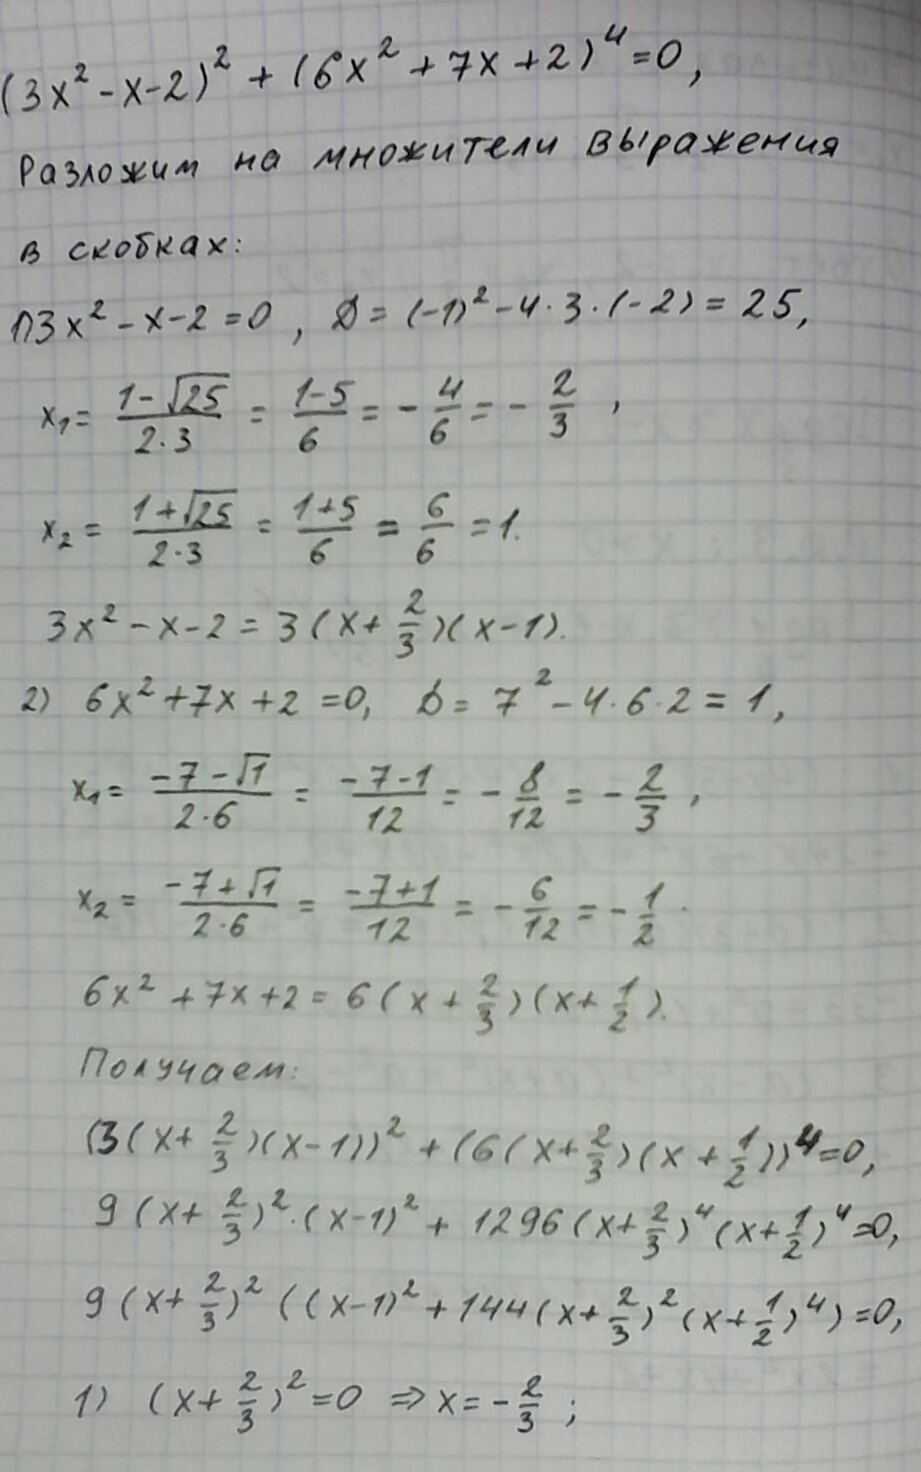 (3x² - x - 2)² + (6x² + 7x + 2)⁴ = 0,
Разложим на множители выражения
в скобках:
1) 3x² - x - 2 = 0, D = (-1)² - 4·3·(-2) = 25,
x₁ = (1 - √25)/(2·3) = (1-5)/6 = -4/6 = -2/3,
x₂ = (1 + √25)/(2·3) = (1+5)/6 = 6/6 = 1.
3x² - x - 2 = 3(x + 2/3)(x - 1).
2) 6x² + 7x + 2 = 0, D = 7² - 4·6·2 = 1,
x₁ = (-7 - √1)/(2·6) = (-7-1)/12 = -8/12 = -2/3,
x₂ = (-7 + √1)/(2·6) = (-7+1)/12 = -6/12 = -1/2.
6x² + 7x + 2 = 6(x + 2/3)(x + 1/2).
Получаем:
(3(x + 2/3)(x - 1))² + (6(x + 2/3)(x + 1/2))⁴ = 0,
9(x + 2/3)²·(x - 1)² + 1296(x + 2/3)⁴(x + 1/2)⁴ = 0,
9(x + 2/3)²((x - 1)² + 144(x + 2/3)²(x + 1/2)⁴) = 0,
1) (x + 2/3)² = 0 ⇒ x = -2/3;